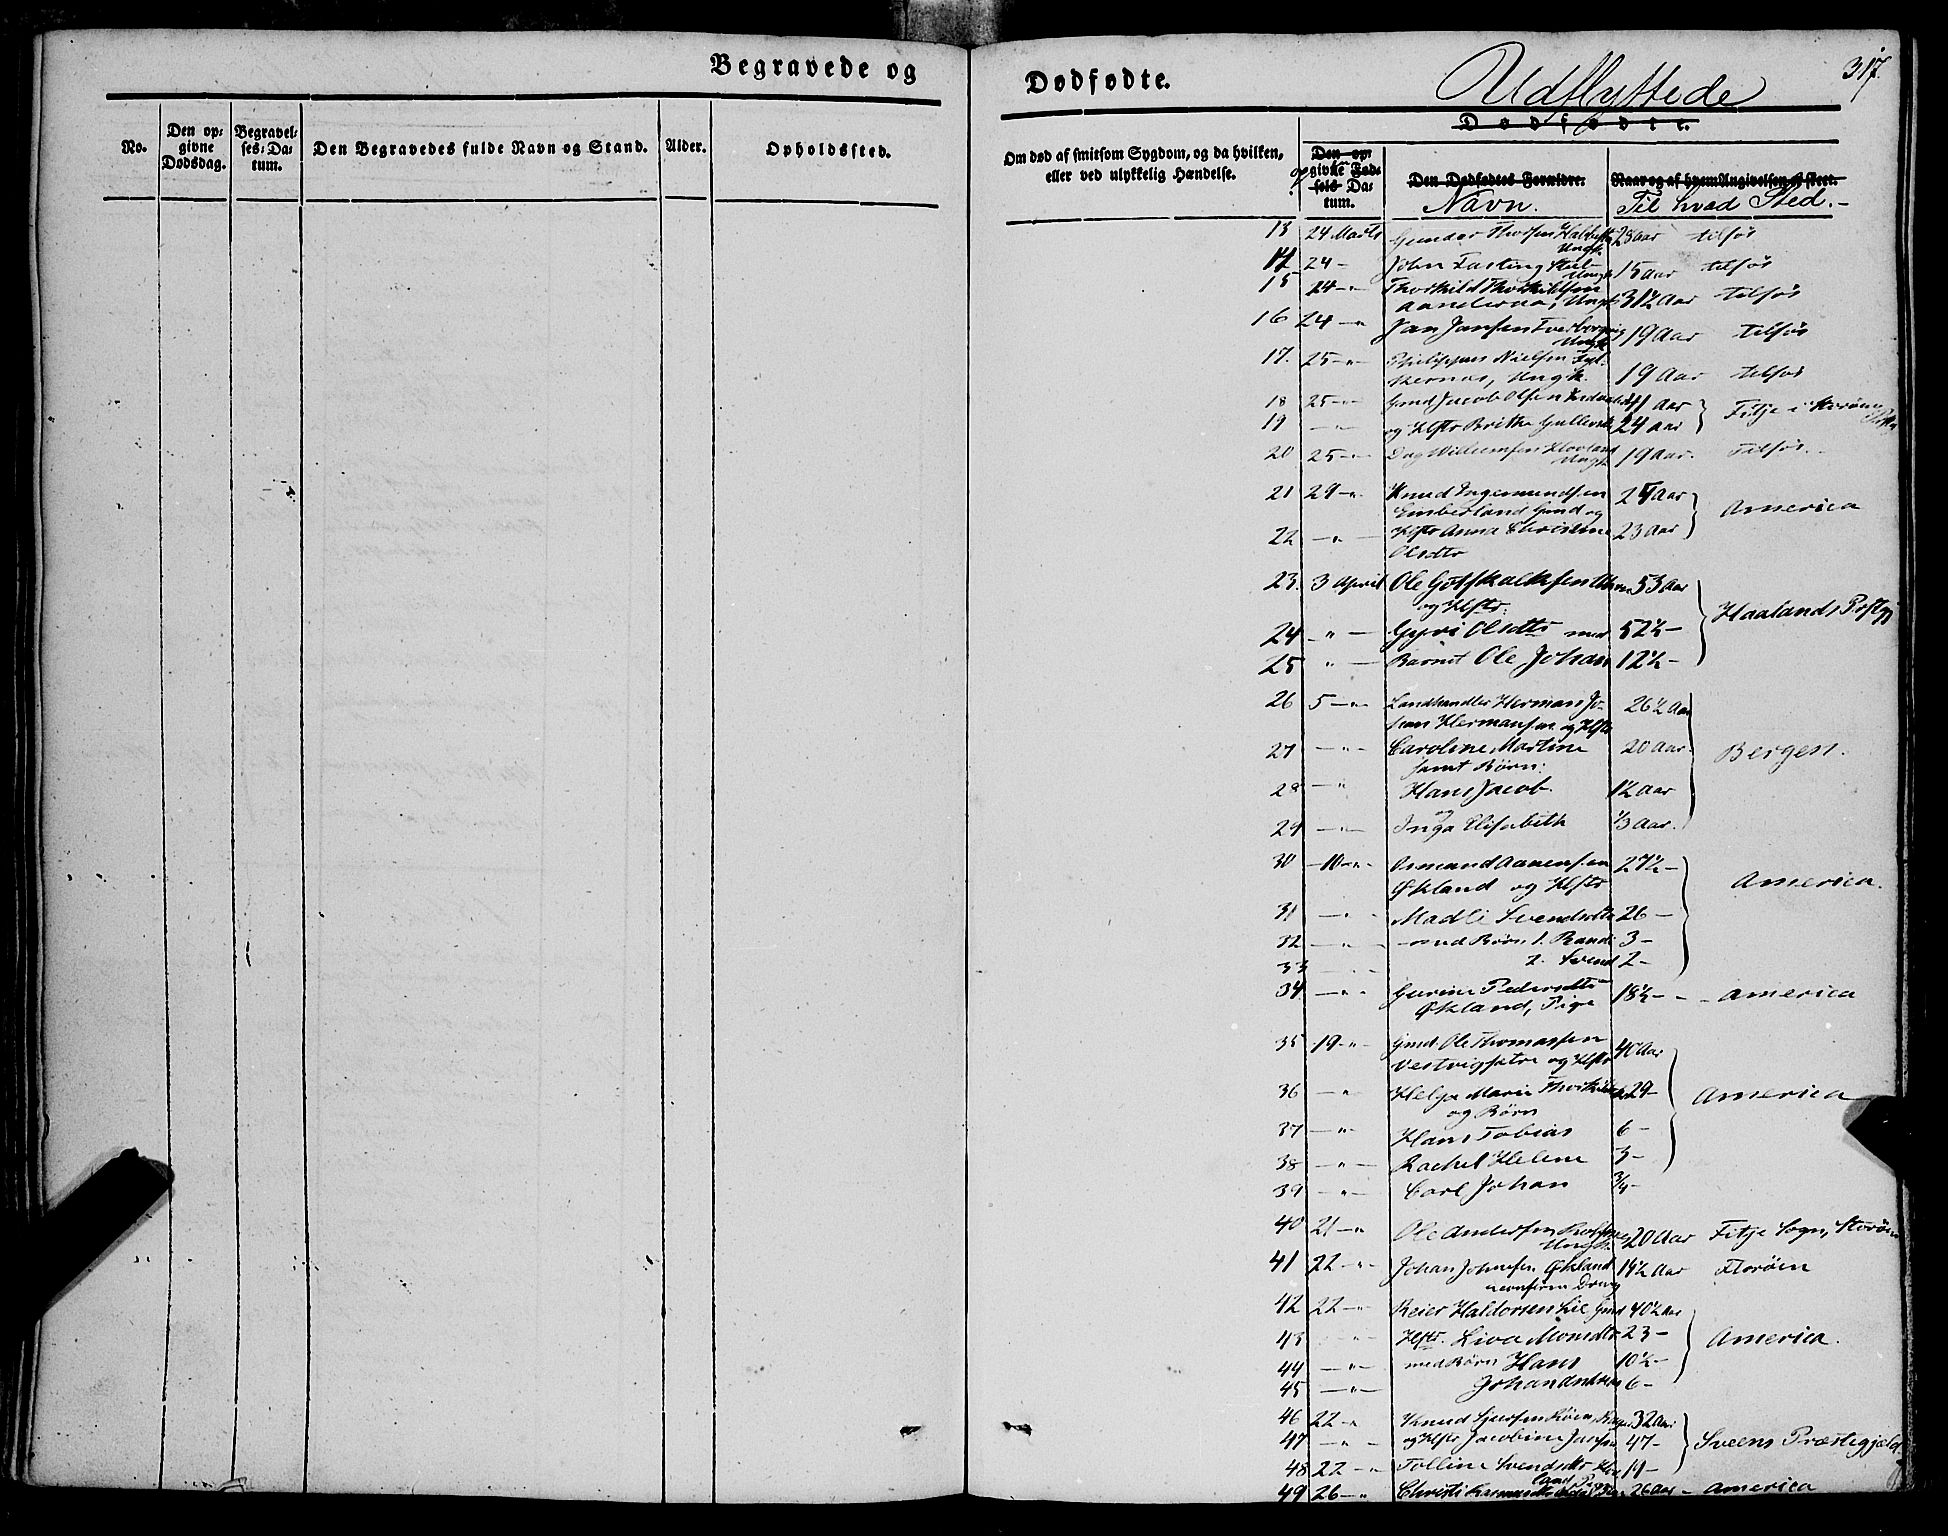 Begravede og
Dødfødte.
Udflyttede
317.
No.
Den op-
givne
Dødsdag.
Begravel-
ses-Da-
tum.
Den Begravedes fulde Navn og Stand.
Alder.
Opholdssted.
Om død af smitsom Sygdom, og da hvilken,
eller ved ulykkelig Hændelse.
Dødfødte.
Den op-
givne Fød-
sels-Da-
tum.
Den Dødfødtes Forældre.
Naar og af hvem Angivelsen er skeet.
Navn.
Til hvad Sted.
13 24 Marts Gunder Thorsen 28 aar tilsøs
Ungk.
14 24 - John Fasting 15 aar tilsøs
Ungk
15 24 - " Thorkild Thorkildsen
Ungk 31½ aar tilsøs
16 24 - " Jan Jansen 19 aar tilsøs
Ungk
17. 25 - " Philippus Nielsen
Ungk. 19 aar tilsøs
18 25 - " Gmd Jacob Olsen aar Fitje i Storøens
19 - " - og Hstr Brithe 24 aar
20 25 - " Dag Willumsen Hovland 19 aar. Tilsøs.
Ungk
21 29 - " Knud Ingemundsen aar America
Emberland Gmd og
22 - " Hstr Anna Christine 23 aar
Olsdtr
23. 3 April Ole Gotskalksen 53 aar Haalands Præstgj
og Hstr:
24 - " - Gyri Olsdtr med 52½ -
25 " - Barnet Ole Johan 12½ -
26 5 - " Landhandler Herman Jo- 26½ Aar Bergen.
han Hermansen og Hstr
27 - " Caroline Martine 20 aar
samt Børn:
28 - " Hans Jacob. 1½ aar
og
29 - " - Inga Elisabeth ⅓ aar.
30 - 10 - " Asmund Aanensen 27½ - America.
Økland og Hstr
31 - " - Madli Svendsdtr 26 -
32 - " - med Børn 1. Randi 3 -
33 - - 2. Svend 2 -
34 - " - Gurine Pedersdtr 18½ - - America
Økland, Pige
35 19 - " Gmd Ole Thomassen 40 aar America
og Hstr
36 - " Helga Marie 29 -
og Børn
37 - " Hans Tobias 6 -
38 - " - Rachel Helene 3 -
39 - " - Carl Johan ¾ -
40 21 - " Ole Andersen 20 aar Fitje Sogn, Storøen
Ungk
41 22 - " - Johan Johnsen Økland 14½ aar Florøen
Dreng
42 22 - " Reier Haldorsen Lie Gmd 40½ aar America.
43 - " Hstr. Liva Monsdtr 23 -
44 - " - med Børn Hans 10½ -
45 - " - 6 -
46 22 - " Knud Sjursen 32 aar Sveens Præstegjæld
47 - " - og Hstr Jacobine 47 -
48 22 - " Tolline Svendsdtr 19 -
49 26 - " Christi 26 aar - America